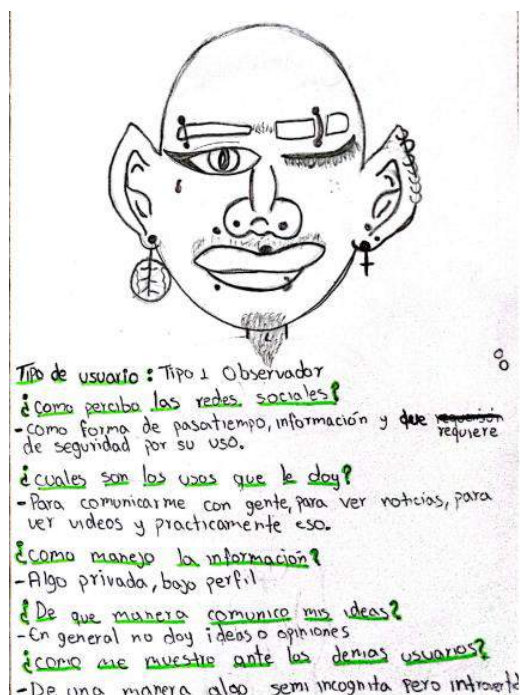 Tipo de usuario: Tipo 1 Observador
¿como percibo las redes sociales?
-como forma de pasatiempo, información y que requiere
de seguridad por su uso.
¿cuales son los usos que le doy?
-Para comunicarme con gente, para ver noticias, para
ver videos y practicamente eso.
¿como manejo la información?
-Algo privada, bajo perfil
¿De que manera comunico mis ideas?
-En general no doy ideas o opiniones
¿como me muestro ante los demas usuarios?
-De una manera algo semi incognita pero introvertid